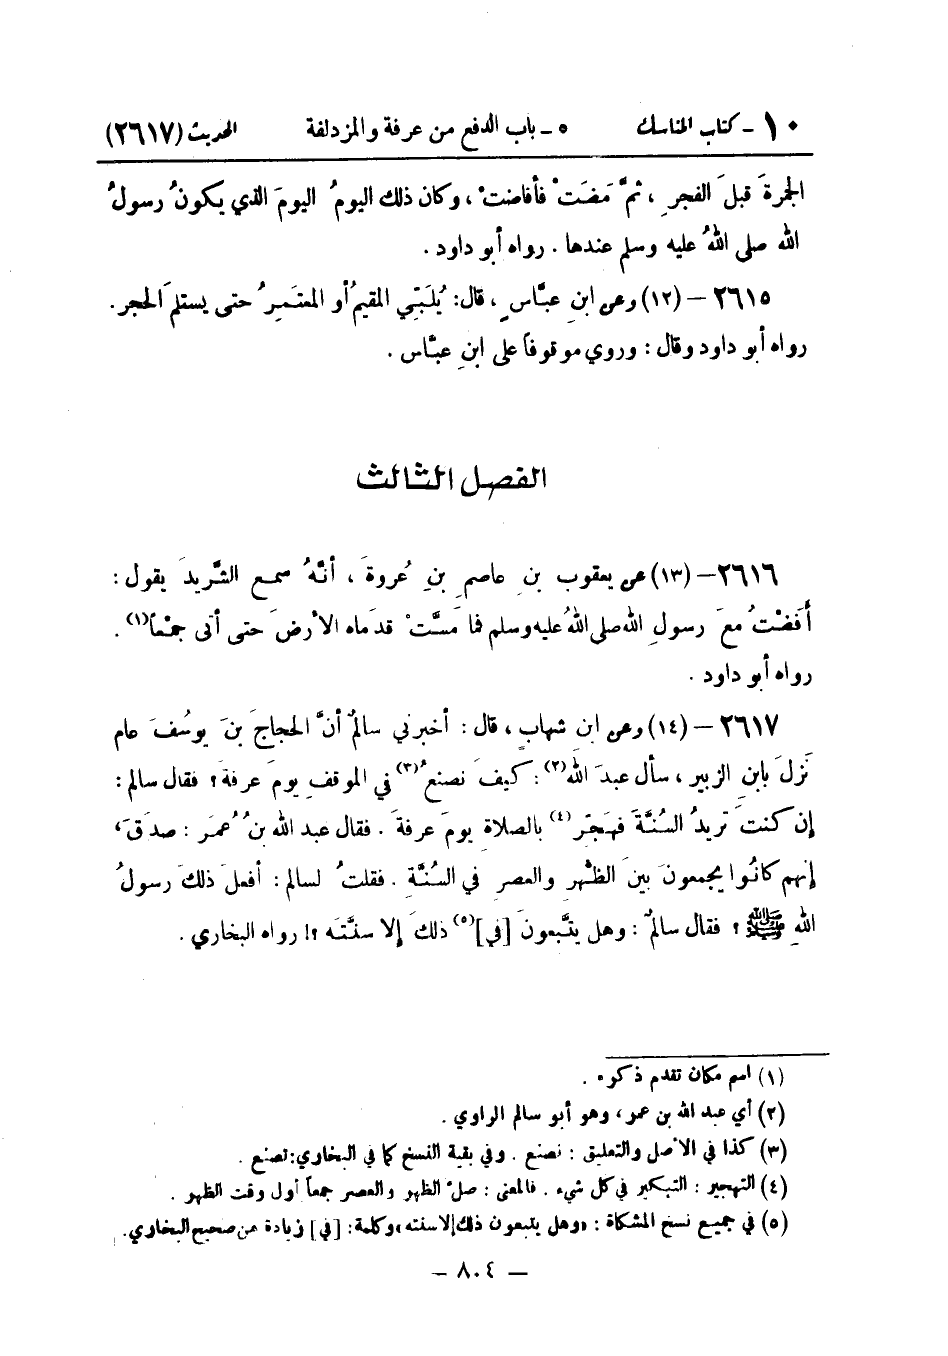 ١٠ - كتاب المناسك ٥ - باب الدفع من عرفة والمزدلفة الحديث (٢٦١٧)
الجمرةَ قبلَ الفجرِ ، ثمَّ مَضَتْ فأفاضتْ ، وكان ذلك اليومُ اليومَ الذي يكونُ رسولُ
الله صلى اللهُ عليه وسلم عندها . رواه أبو داود .
٢٦١٥ – (١٢) وعن ابنِ عبَّاسٍ ، قال: يُلَبِّي المقيمُ أو المعتمِرُ حتى يستلمَ الحجر .
رواه أبو داود وقال : وروي موقوفاً على ابنِ عبَّاس .
الفصل الثالث
٢٦١٦ – (١٣) عن يعقوب بنِ عاصمِ بنِ عُروةَ ، أنَّهُ سمع الشَّريدَ يقول :
أَفَضْتُ مَعَ رسولِ الله صلى اللهُ عليه وسلم فما مَسَّتْ قدماه الأرضَ حتى أتى جمْعاً(١) .
رواه أبو داود .
٢٦١٧ – (١٤) وعن ابن شهابٍ ، قال : أخبرني سالمٌ أنَّ الحجاجَ بنَ يوسُفَ عام
نَزلَ بابنِ الزبير ، سأل عبدَ الله(٢) : كيفَ نصنعُ(٣) في الموقفِ يومَ عرفةَ ؟ فقال سالم :
إِن كنتَ تريدُ السُنَّةَ فهجِّر(٤) بالصلاة يومَ عرفةَ . فقال عبد الله بنُ عُمرَ : صدَقَ ،
إِنهم كانُوا يجمعونَ بينَ الظُّهر والعصر في السُنَّةِ . فقلتُ لسالم : أفعلَ ذلكَ رسولُ
اللهِ ﷺ ؟ فقال سالمٌ : وهل يتَّبعونَ [في](٥) ذلكَ إِلا سنَّتَه ؟! رواه البخاري .
(١) اسم مكان تقدم ذكره .
(٢) أي عبد الله بن عمر ، وهو أبو سالم الراوي .
(٣) كذا في الأصل والتعليق : نصنع . وفي بقية النسخ كما في البخاري: تصنع .
(٤) التهجير : التبكير في كل شيء . فالمعنى : صلّ الظهر والعصر جمعاً أول وقت الظهر .
(٥) في جميع نسخ المشكاة : «وهل يتبعون ذلك إلا سنته» وكلمة: [في] زيادة من صحيح البخاري.
– ٨٠٤ –